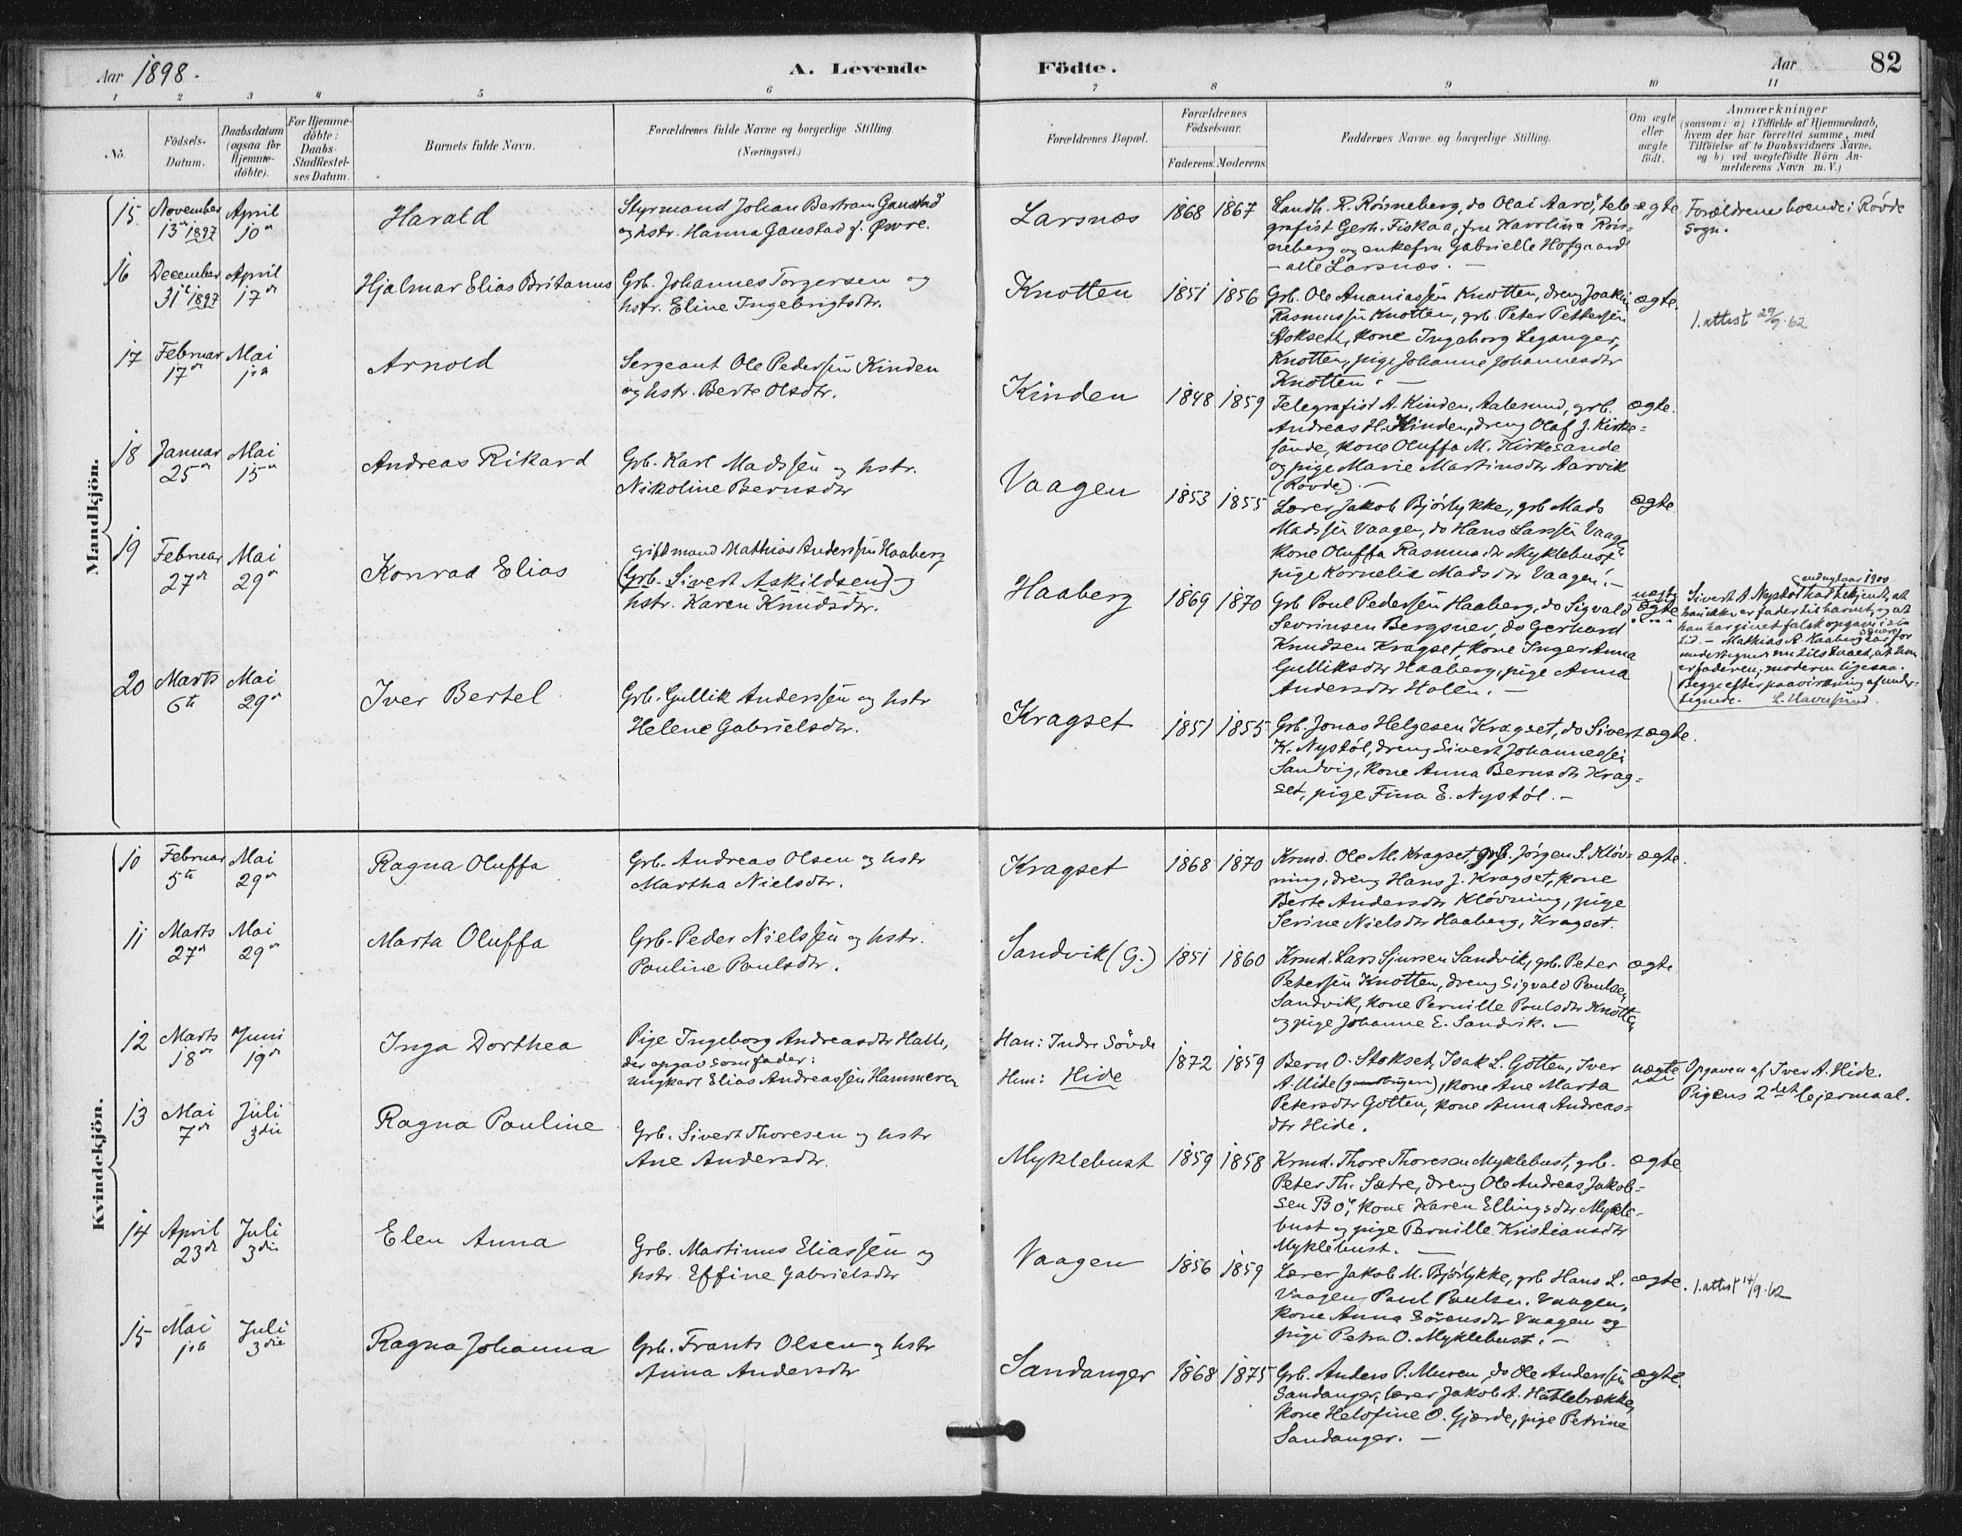 Aar 1898.
A. Levende
Födte.
Aar
82
1 2 3 4 5 6 7 8 9 10 11
No.
Födsels-
Datum.
Daabsdatum
(ogsaa for
Hjemme-
döbte).
For Hjemme-
döbte:
Daabs-
Stadfestel-
ses Datum.
Barnets fulde Navn.
Forældrenes fulde Navne og borgerlige Stilling.
(Næringsvei.)
Forældrenes Bopæl.
Forældrenes
Födselsaar.
Faderens. Moderens.
Faddernes Navne og borgerlige Stilling.
Om ægte
eller
uægte
födt.
Anmærkninger
(saasom: a) i Tilfælde af Hjemmedaab,
hvem der har forrettet samme, med
Tilföielse af to Daabsvidners Navne,
og b) ved uægtefödte Börn An-
melderens Navn m. V.)
Mandkjön.
15. November 13de 1897
April 10de
Harald
Styrmand Johan Bertram Ganstad
og hstr. Hanna Ganstad f. Øvre.
Larsnæs
1868 1867
Landh. R. Röisneberg, do Olai Aarö, tele
grafist Gerh. Fiskaa, fru Karolina Röis-
neberg og enkefru Gabrielle Hofgaard
– alle Larsnæs. –
ægte
Forældrene boende i Rövde
Sogn.
16 December 31te 1897
April 17de
Hjalmar Elias Britanus
Grb. Johannes Torgersen og
hstr. Eline Ingebrigtsdtr.
Knotten
1851 1856
Grb. Ole Ananiassen Knotten, dreng Joakim
Rasmussen Knotten, grb. Peter Pettersen
Stokset, kone Ingeborg Leganger,
Knotten, pige Johanne Johannesdtr
Knotten. –
ægte.
1. attest 29/9-62
17 Februar 17de
Mai 1ste
Arnold
Sergeant Ole Pedersen Kinden
og hstr. Berte Olsdtr.
Kinden
1848 1859
Telegrafist A. Kinden, Aalesund, grb.
Andreas H. Kinden, dreng Olaf J. Kirke-
sande, kone Oluffa M. Kirkesande
og pige Marie Martinsdtr Aarvik
(Rövde). –
ægte.
18 Januar 25de
Mai 15de
Andreas Rikard
Grb. Karl Madssen og hstr.
Nikoline Bernsdtr
Vaagen
1853 1855
Lærer Jakob Björlykke, grb Mads
Madssen Vaagen, do Hans Larssen Vaagen
kone Oluffa Rasmusdtr Myklebust
pige Kornelia Madsdtr Vaagen. –
ægte
19 Februar 27de
Mai 29de
Konrad Elias
giftmand Mathias Anderssen Haaberg
(Grb. Sivert Askildsen) og
hstr. Karen Knudsdtr.
Haaberg
1869 1870
Grb Poul Pedersen Haaberg, do Sigvald
Sevrinsen Bergsnev, do Gerhard
Knudsen Kragset, kone Inger Anna
Gulliksdtr Haaberg, pige Anna
Andersdtr Holen. –
uægte
ægte
Sivert A. Nystöl har bekjendt, at
han ikke er fader til barnet, og at
han har givet falsk opgave i sin
tid. – Mathias A. Haaberg har for
undertegnede tilstaaet, at han
er faderen; moderen ligesaa.
Begge efter paavirkning af under-
tegnede.
20 Marts 6te
Mai 29de
Iver Bertel
Grb. Gullik Anderssen og hstr
Helene Gabrielsdtr.
Kragset
1851 1855
Grb. Jonas Helgesen Kragset, do Sivert
K. Nystöl, dreng Sivert Johannessen
Sandvig, kone Anna Bernsdtr Krag-
set, pige Fina E. Nystöl. –
ægte.
Kvindekjön.
10 Februar 5te
Mai 29de
Ragna Oluffa
Grb. Andreas Olsen og hstr
Martha Nielsdtr.
Kragset
1868 1870
Krmd. Ole M. Kragset, grb. Jörgen S. Klöv-
ning, dreng Hans J. Kragset, kone
Berte Andersdtr Klövning, pige
Serine Nielsdtr Haaberg, Kragset.
ægte.
11 Marts 27de
Mai 29de
Marta Oluffa
Grb. Peder Nielssen og hstr.
Pauline Poulsdtr.
Sandvik (G.)
1851 1860
Krmd. Lars Sjursen Sandvik, grb. Peter
Petersen Knotten, dreng Sigvald Poulsen
Sandvik, kone Pernille Poulsdtr Knotten
og pige Johanne E. Sandvik. –
ægte
12 Marts 18de
Juni 19de
Inga Dorthea
Pige Ingeborg Andreasdtr Halle,
der opgav som fader:
ungkarl Elias Andreassen Hammeren
Han: Indre Sövde
Hun: Hide
1872 1859
Bern O. Stokset, Isak L. Gotten, Iver
A. Hide, kone Ane Marta
Petersdtr Gotten, kone Anna Andreas-
dtr Hide.
uægte
Opgaven af Iver A. Hide.
Pigens 2det leiermaal.
13 Mai 7de
Juli 3die
Ragna Pauline
Grb. Sivert Thoresen og hstr
Ane Andersdtr.
Myklebust
1859 1858
Krmd. Thore Thoresen Myklebust, grb.
Peter Th. Sætre, dreng Ole Andreas Jakob-
sen Bö, kone Karen Ellingsdtr Mykle-
bust og pige Pernille Kristiansdtr
Myklebust. –
ægte
14 April 23de
Juli 3die
Elen Anna
Grb. Martinus Eliassen og
hstr. Effine Gabrielsdtr
Vaagen
1856 1859
Lærer Jakob M. Björlykke, grb Hans L.
Vaagen, Paul Paulsen Vaagen,
kone Anna Sörensdtr Vaagen og
pige Petra O. Myklebust. –
ægte.
1. attest 14/9-62
15 Mai 1ste
Juli 3die
Ragna Johanna
Grb. Frants Olsen og hstr
Anna Andersdtr
Sandanger
1868 1875
Grb. Anders P. Muren, do Ole Anderssen
Sandanger, lærer Jakob A. Hatlebrække,
kone Helofine O. Gjærde, pige Petrine
Sandanger. –
ægte.